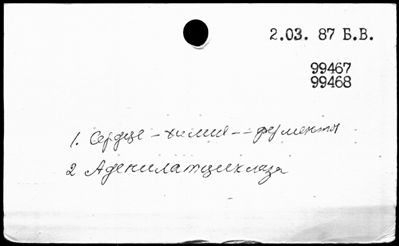 2.03. 87 Б.В.
99467
99468
1. Сердце - химия -- ферменты
2 Аденилатциклаза